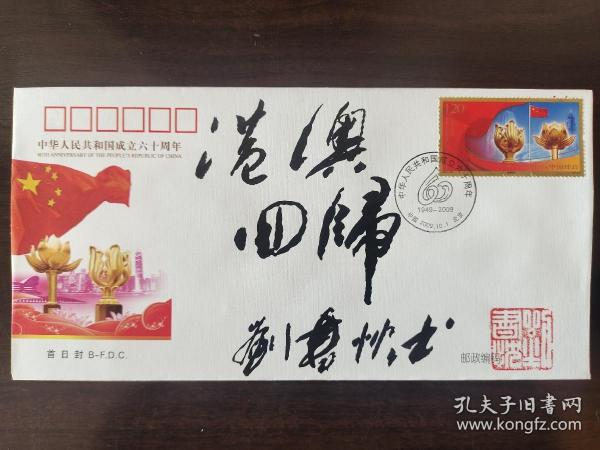 中华人民共和国成立六十周年
60TH ANNIVERSARY OF THE PEOPLE'S REPUBLIC OF CHINA
港澳
回歸
劉書
首日封 B-F.D.C.
1.20
中华人民共和国成立六十周年
60
1949-2009
中国 2009.10.1 北京
邮政编码
孔夫子旧书网
www.kongfz.com